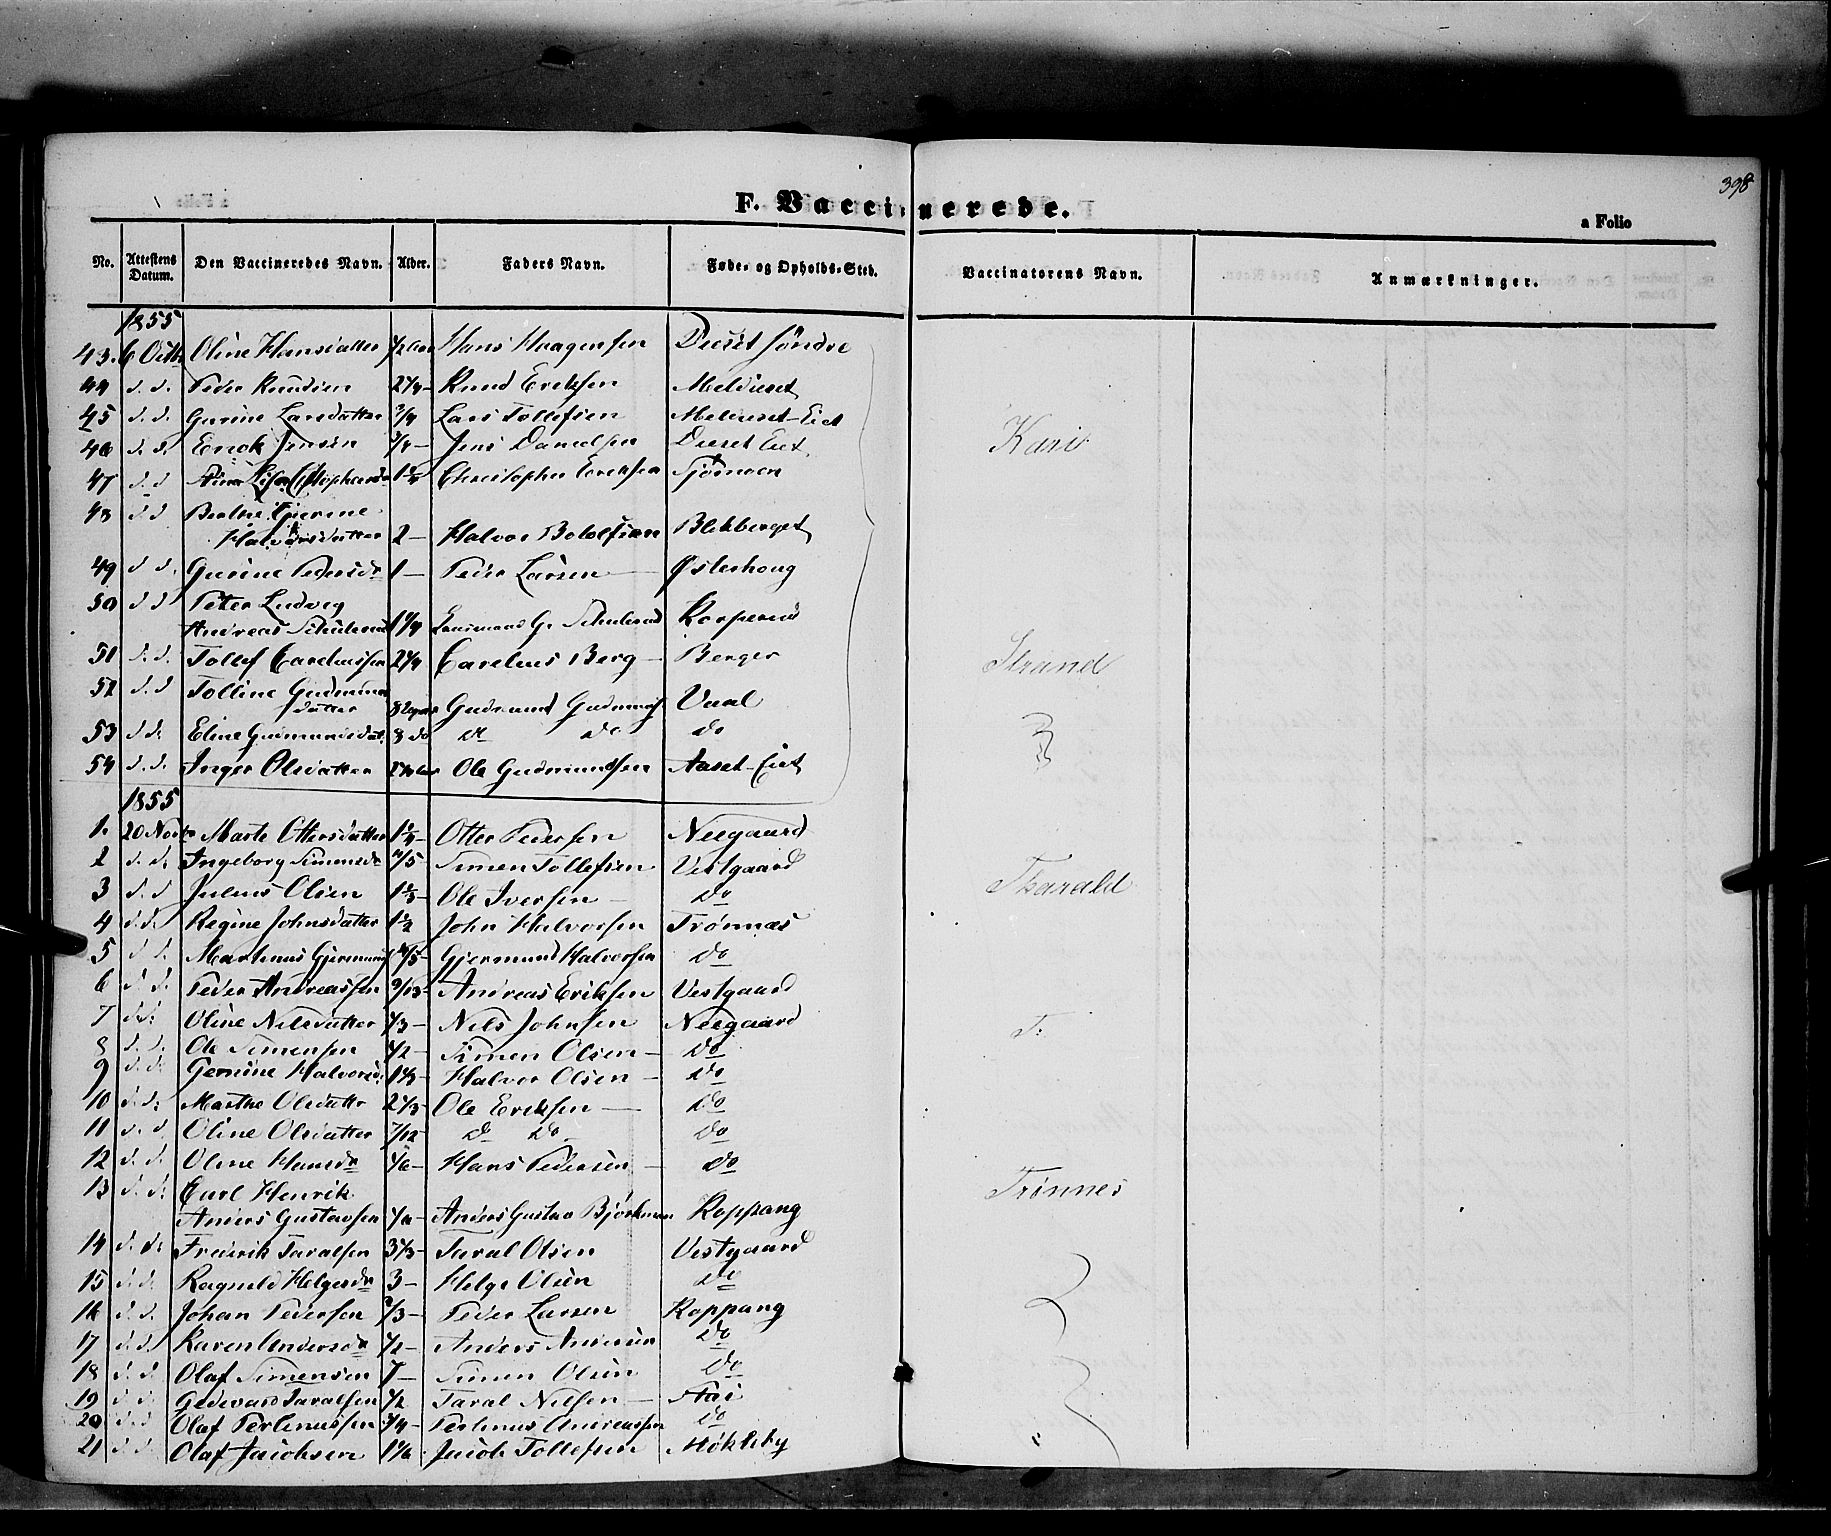 398
F. Vaccinerede.
a Folio
No. Attestens Datum. Den Vaccineredes Navn. Alder. Faders Navn. Føde- og Opholds-Sted. Vaccinatorens Navn. Anmærkninger.
1855
43. 6 Octb Oline Hansdatter 1/2 Aar Hans Haagensen Deset søndre
44 d. d. Peder Knudsen Knud Eriksen Meldeset
45 d. d. Gurine Larsdatter 3/4 Lars Tollefsen Meldeset-Eiet
46 d. d. Erick Jensen 3/4 - Jens Danielsen Deset Eiet Kari
47 d. d Christopher Ericksen Sjømoen
48 d. d Berthe Gurine
Halvorsdatter 2 - Halvor Botolfsen Blekberget
49 d d. Gurine Pedersdr 1 - Peder Larsen Østerhoug
50 d d Peter Ludvig
Andreas G. Korperud
51 d. d. Tollef Careliussen 2 1/4 Carelius Berg - Berger Strand
52 d. d Tolline Gudmunds
datter Gudmund Gudmunds Vaal
53 d d. Eline Gudmundsdat. 8 do do do do
54 d. d. Inger Olsdatter Ole Gudmundsen Aaset-Eiet
1855
1. 20 Novbr Marte Ottersdatter 1 1/4 Otter Pedersen Neegaard
2 d. d. Ingeborg Simensdr /5 Simen Tollefsen Vestgaard
3 d. d Julius Olsen Ole Iversen - do Tharald
4 d. d. Regine Johnsdatter 1 1/2 John Halvorsen Trønnæs
5 d d. Martinus Gjermunds /5 - Gjermund Halvorsen do
6 d. d. Peder Andreassen Andreas Eriksen Vestgaard
7 d. d. Oline Nilsdatter 1/3 - Nils Johnsen Neegaard T:
8 d. d. Ole Simensen 1/2 - Simen Olsen - do
9 d. d. Gurine Halvorsd. Halvor Olsen - do
10 d. d. Marthe Olsdattr 2 1/3 - Ole Eriksen - do
11 d. d Oline Olsdatter 7/12 - d do - do
12 d. d. Oline Hansdr 1/6 - Hans Pedersen - do
13 d. d. Carl Henrik Trønnes
Anders Gustavsen Anders Gustav Bjørkman Koppang
14 d. d. Fredrik Taralsen 3 1/3 - Taral Olsen Vestgaard
15 d. d. Ragnild Helgesdr 3 - Helge Olsen do
16 d. d. Johan Pedersen /3 - Peder Larsen Koppang
17 d. d. Karen Andersdr 1/2 - Anders Andersen do
18 d. d. Olaf Simensen 7 - Simen Olsen do
19 d. d. Gedevard Taralsen 1/2 Taral Nilsen - Aai
20 d. d Olaf Perlinussen 3/4 - Perlinus Andreassen do
21 d d. Olaf Jacobsen 1 1/6 Jacob Tollefsen Møkleby